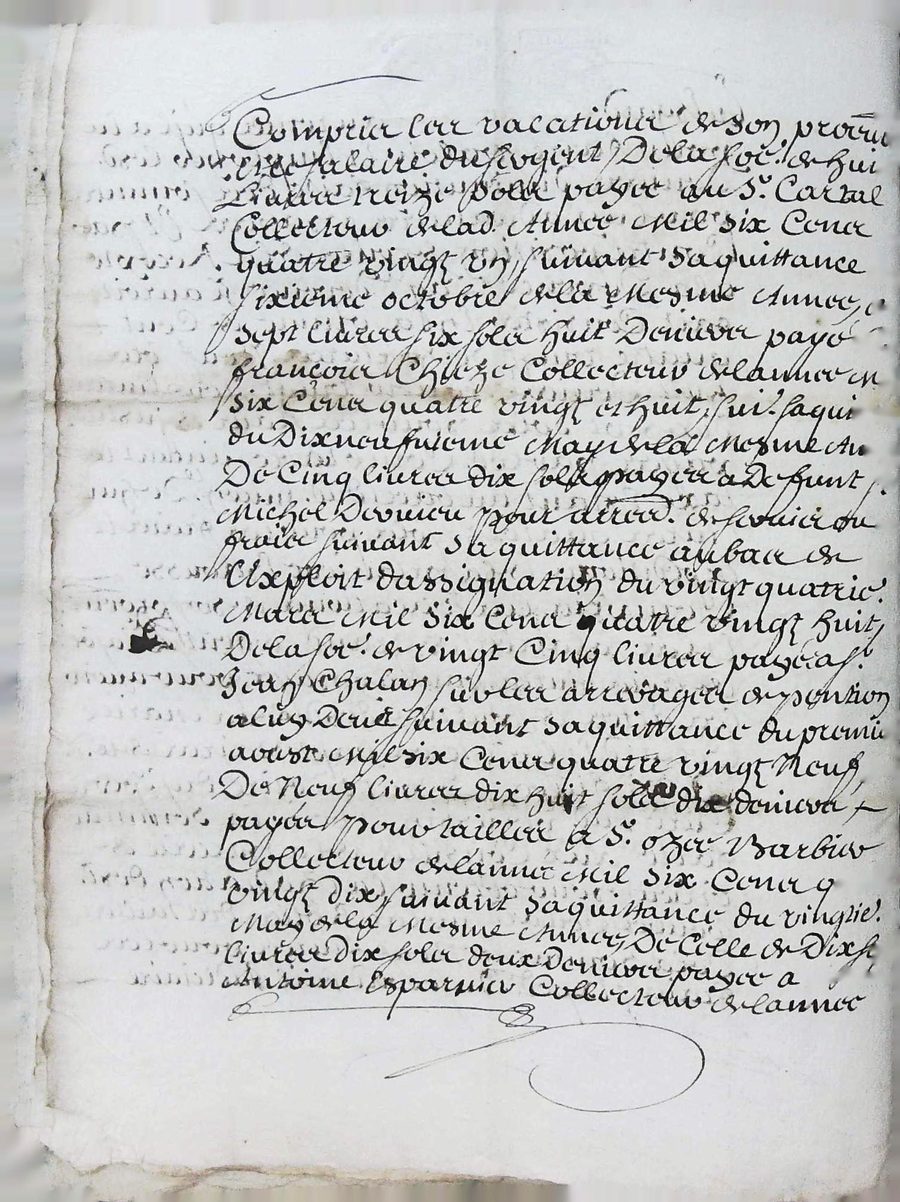 Compris les vacations de son procu
et le salaire du sergent, De la soe. de huit
Livres treize sols payée au Sr. Cartal
Collecteur de lad. Année Mil six Cens
quatre vingt un, suivant sa quittance
sixieme octobre de la Mesme Année,
sept livres six sols huit Deniers payé
françois Chieze Collecteur de lannee M
six Cens quatre vingt et huit, suit. sa qui
du Dixneufvieme May de la Mesme An
De Cinq livres dix sols payés a Defunt
Michel Dernieu pour arred. de
frais suivant sa quittance au bas de
lExploit dassignation du vingt quatrie.
Mars Mil six Cens quatre vingt huit,
De la soe. de vingt Cinq livres payés a Sr.
Jean Chalan sur les arrerages de pention
a luy Deue suivant sa quittance du premie
aoust Mil six Cens quatre vingt Neuf
De Neuf livres dix huit sols dix deniers
payés pour tailles a Sr. ozee Barbier
Collecteur de lannee Mil six Cens q
vingt dix suivant sa quittance du vingtie.
May de la Mesme Annee, De Celle de Dix s
livres dix sols deux Deniers payée a
Antoine Esparvier Collecteur de lannee